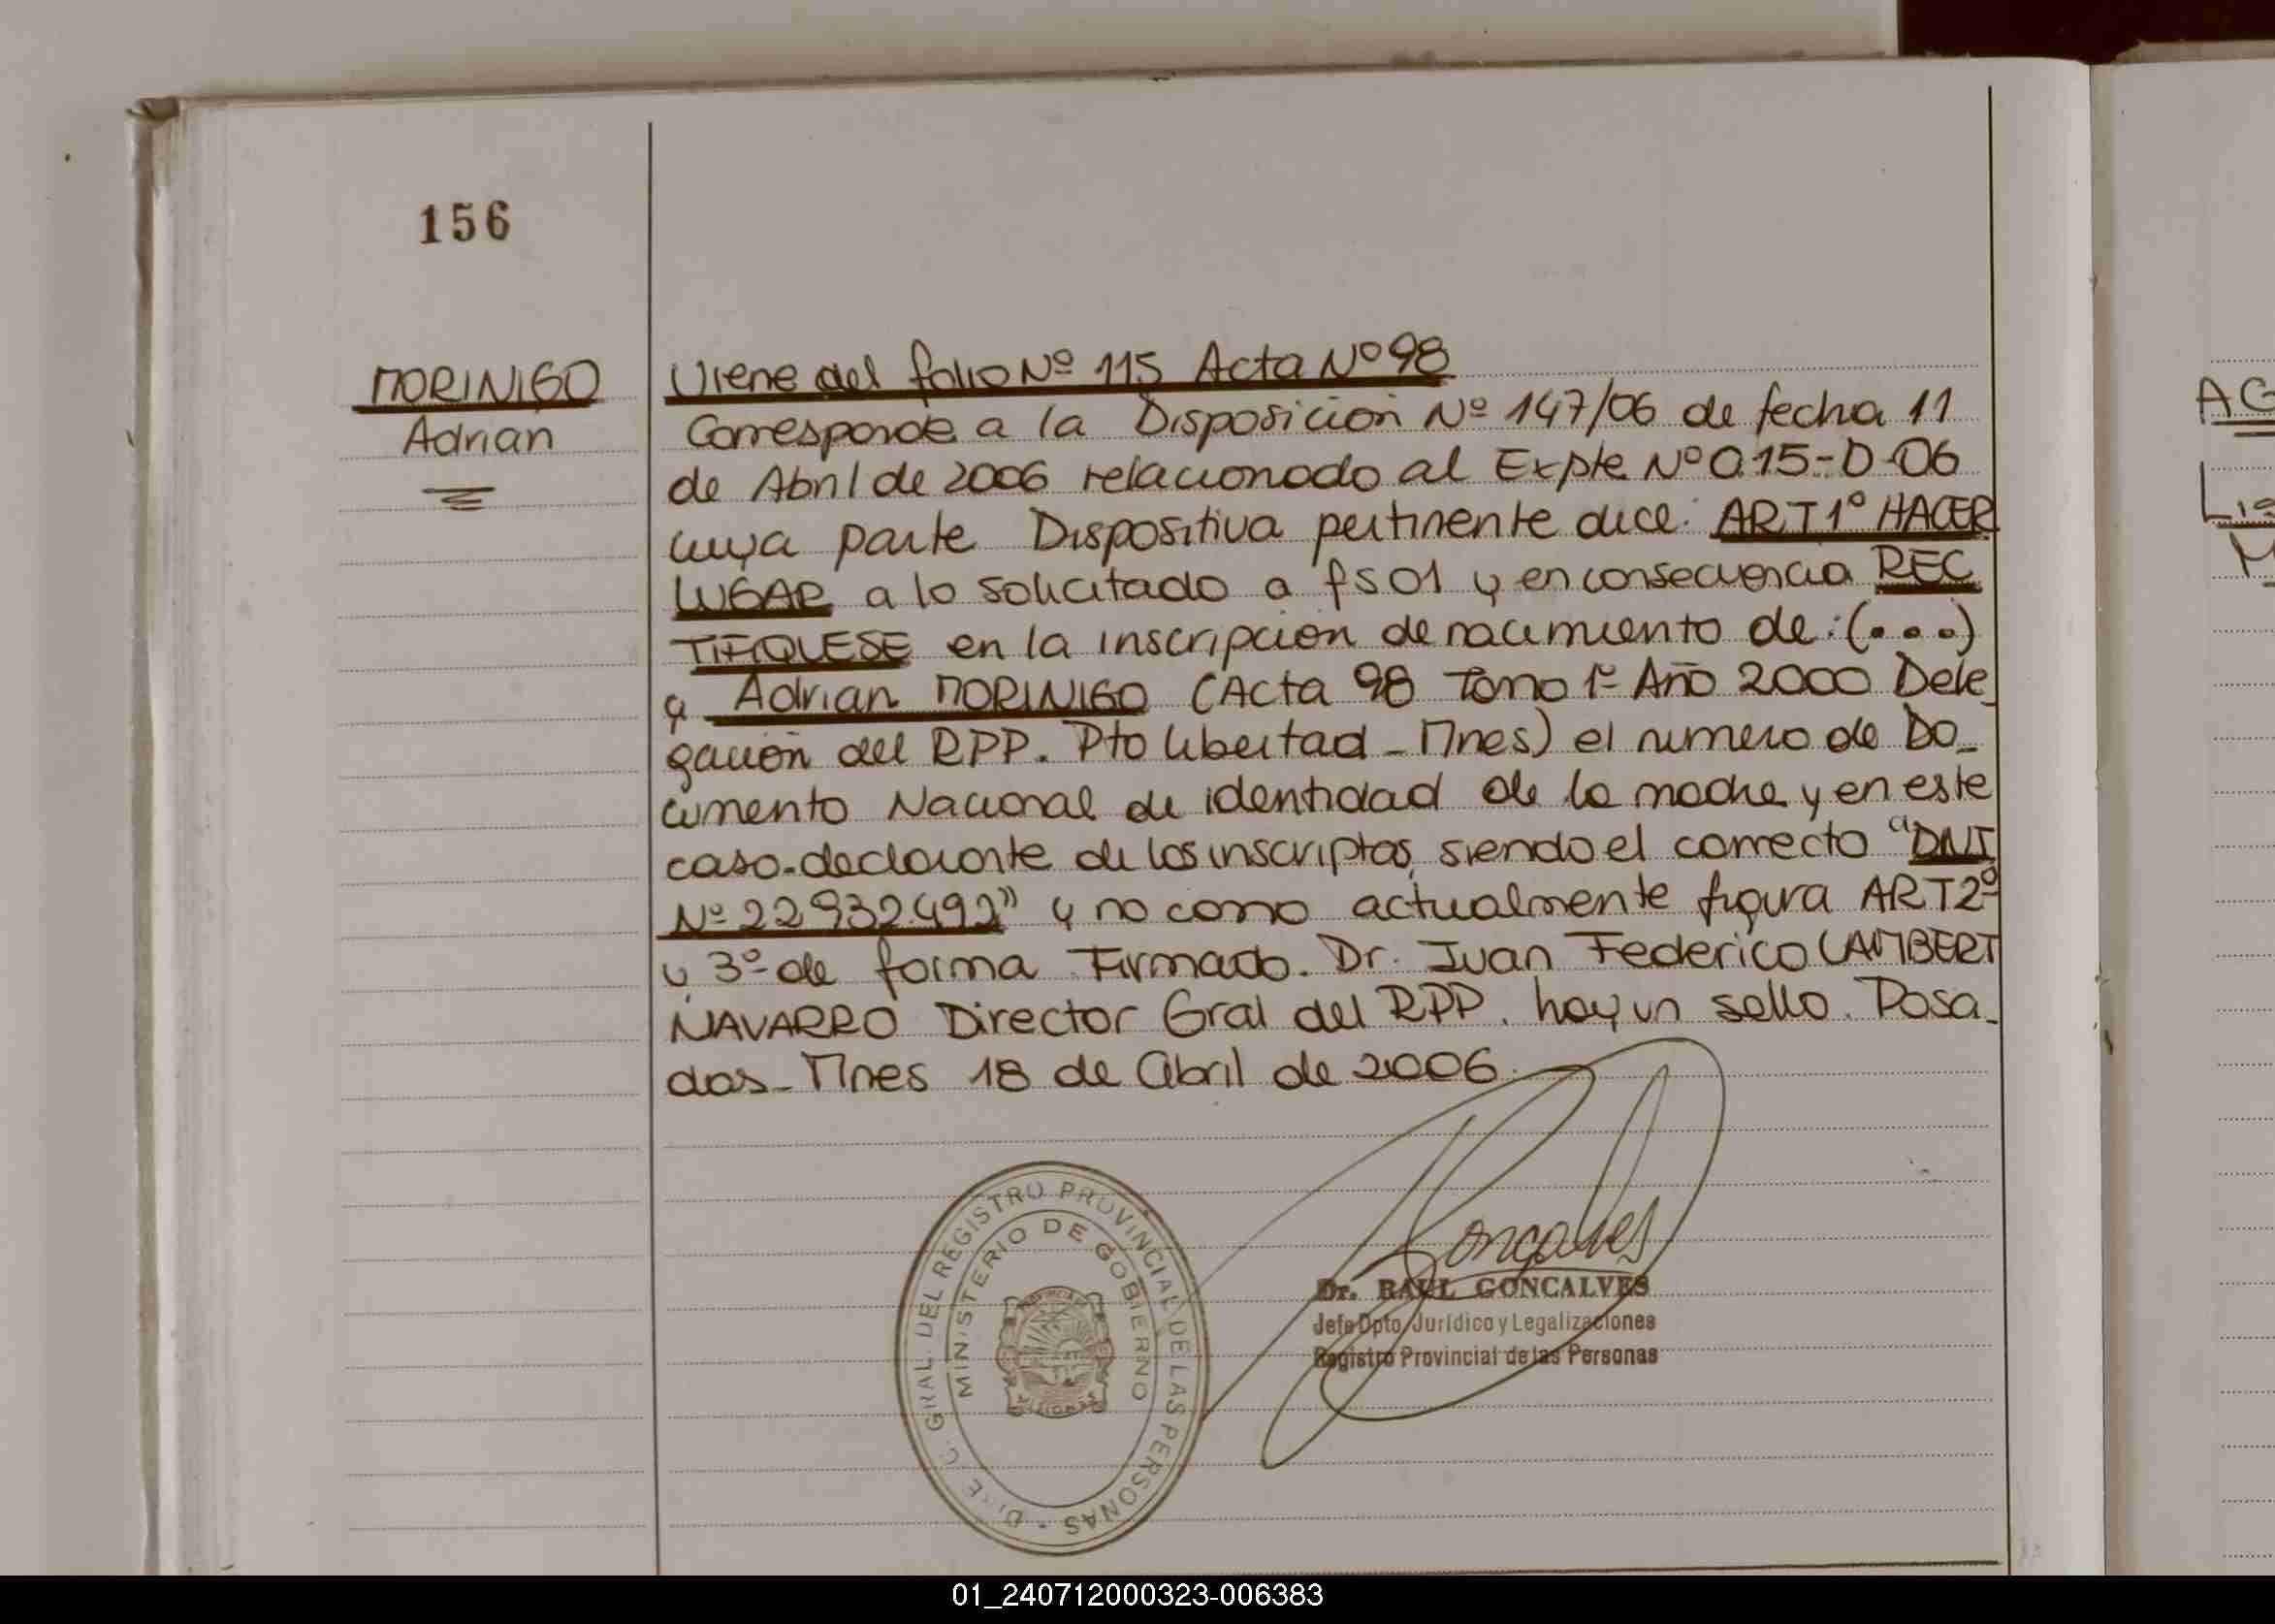 156
MORINIGO
Adrian
Viene del folio Nº 115 Acta Nº 98
Corresponde a la Disposición Nº 147/06 de fecha 11
de Abril de 2006 relacionado al Expte Nº 015-D-06
cuya parte Dispositiva pertinente dice: ART 1º HACER
LUGAR a lo solicitado a fs 01 y en consecuencia REC
TIFIQUESE en la inscripción de nacimiento de: (...)
y Adrian MORINIGO (Acta 98 Tomo 1º Año 2000 Dele_
gación del RPP. Pto libertad - Mnes) el numero de Do_
cumento Nacional de identidad de la madre y en este
caso-declarante de los inscriptos, siendo el correcto "DNI
Nº 22.932.492" y no como actualmente figura ART 2º
y 3º de forma Firmado. Dr. Juan Federico LAMBERT
NAVARRO Director Gral del RPP. hay un sello. Posa_
das - Mnes 18 de abril de 2006.
Goncalves
Dr. RAUL GONCALVES
Jefe Dpto. Jurídico y Legalizaciones
Registro Provincial de las Personas
GRAL. DEL REGISTRO PROVINCIAL DE LAS PERSONAS
MINISTERIO DE GOBIERNO
AG
01_240712000323-006383